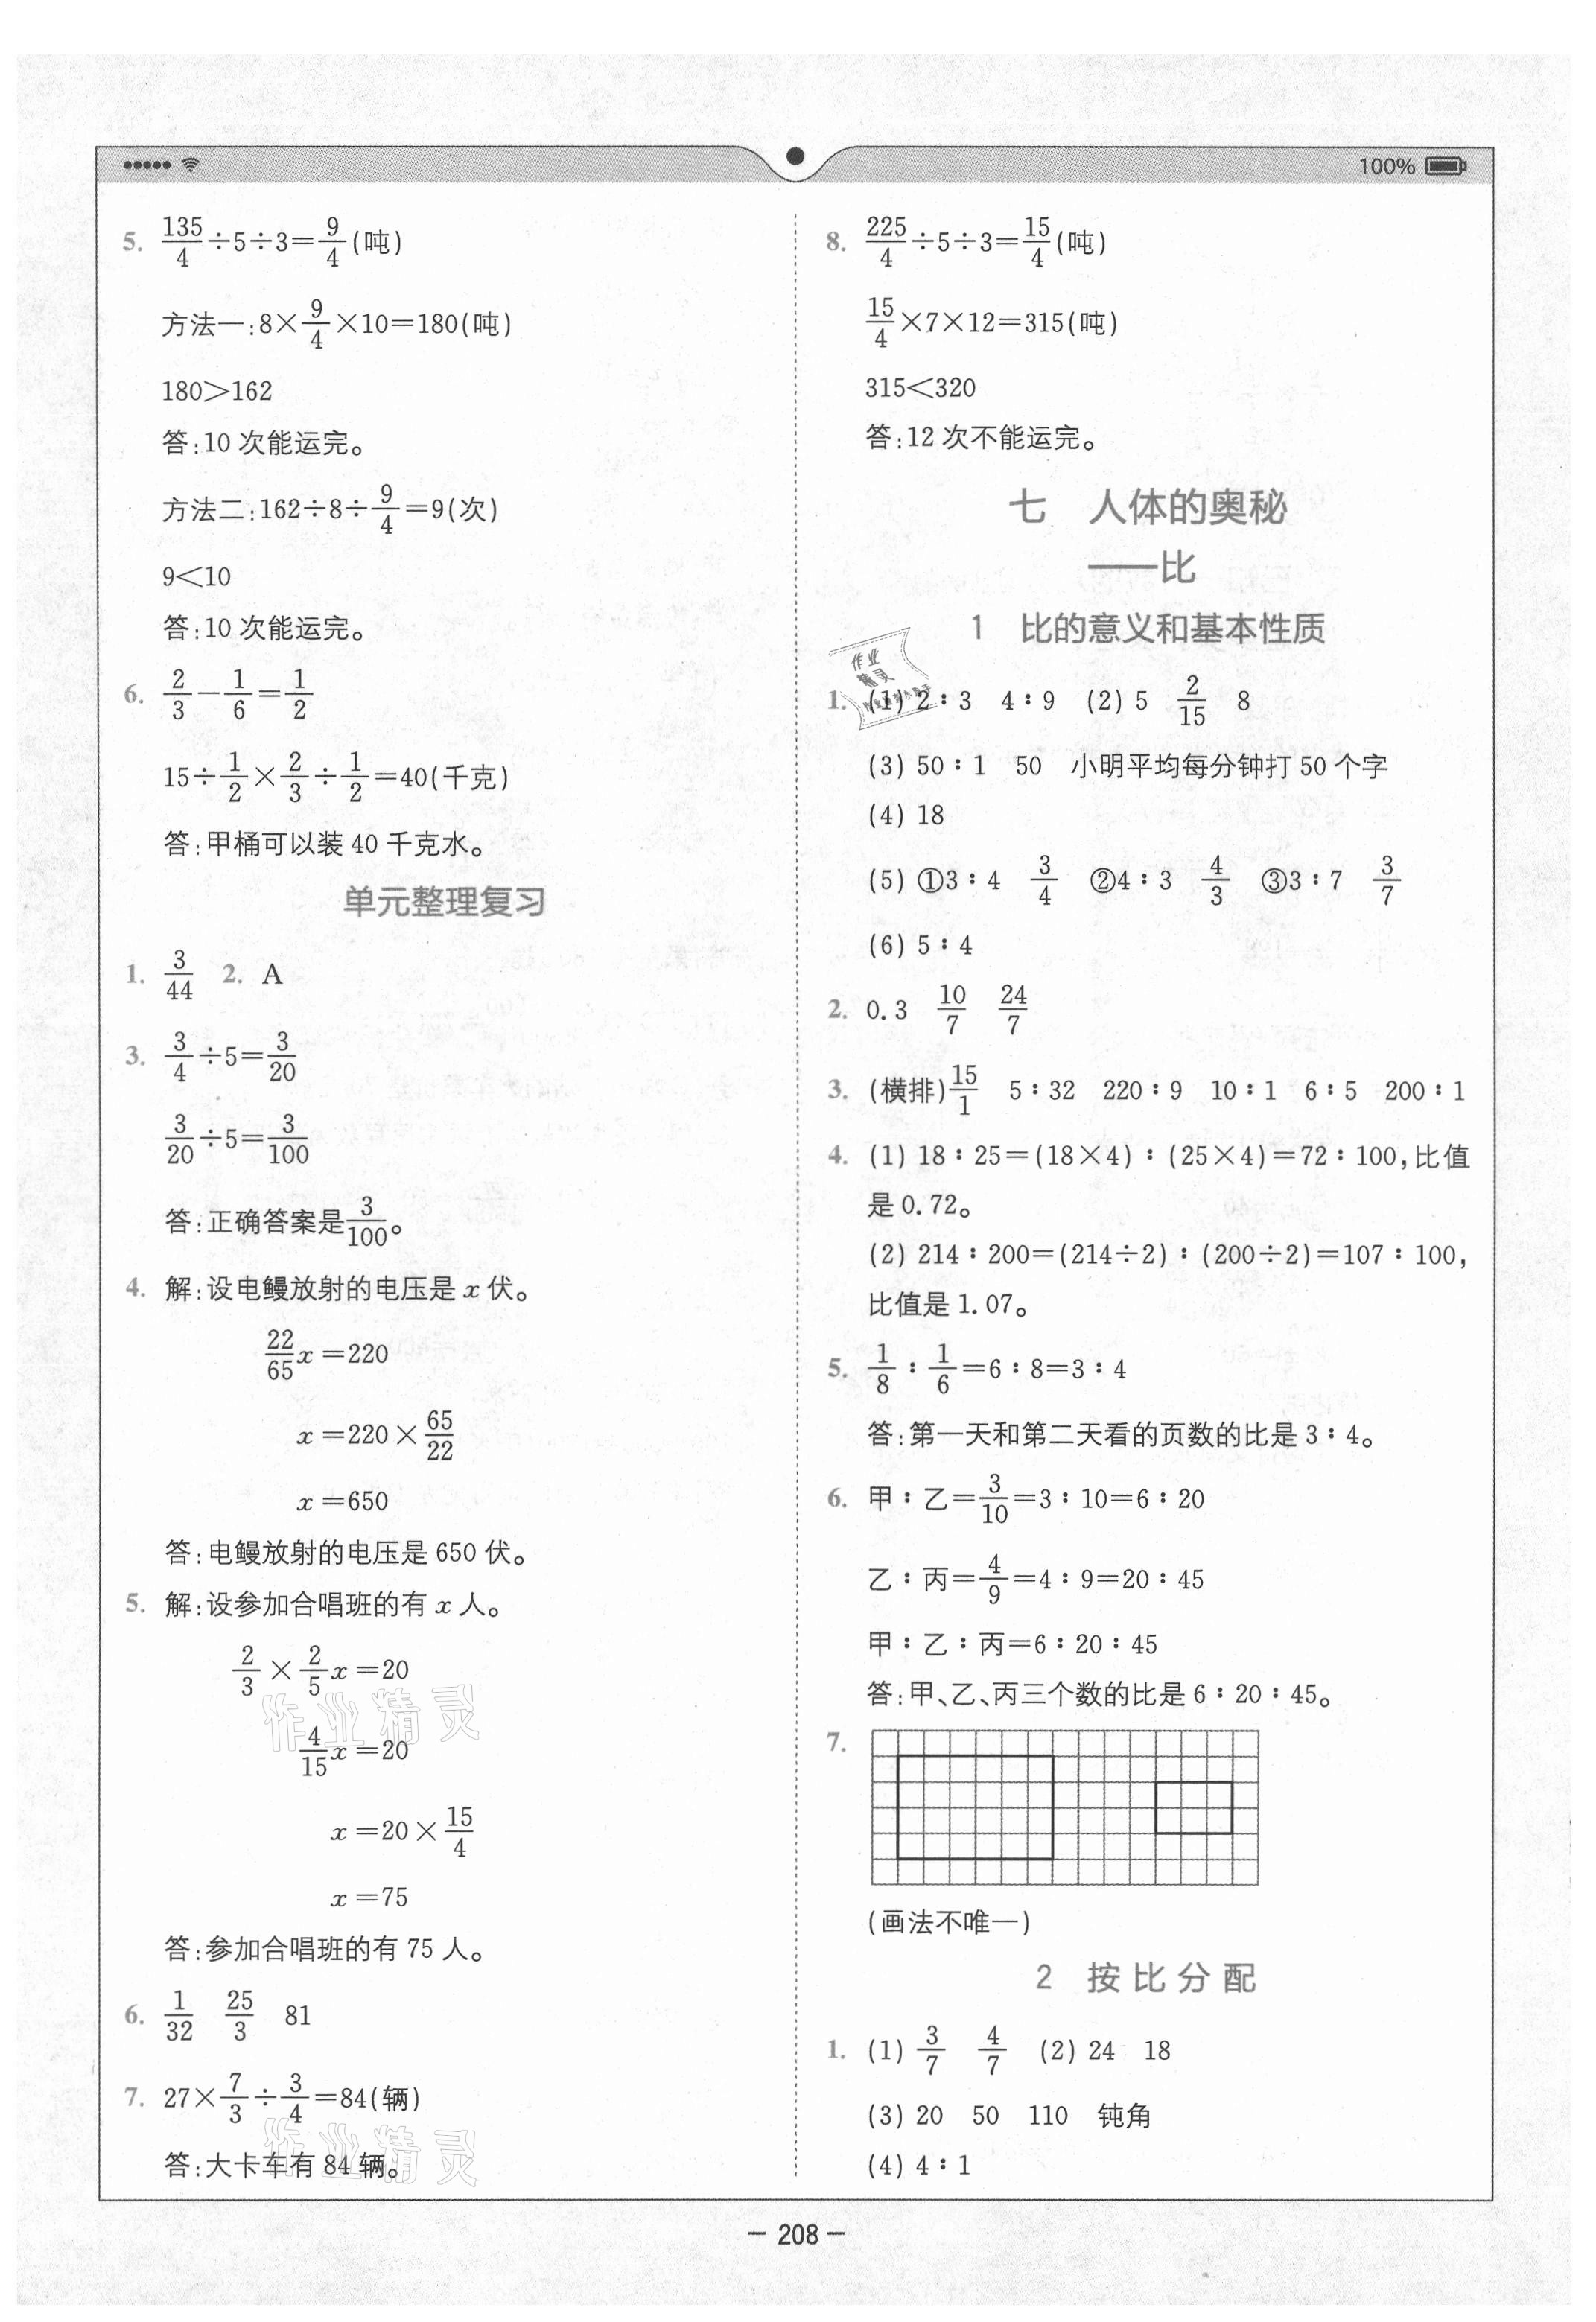 100%
5. 135/4÷5÷3=9/4(吨)
方法一:8×9/4×10=180(吨)
180>162
答:10 次能运完。
方法二:162÷8÷9/4=9(次)
9<10
答:10 次能运完。
6. 2/3-1/6=1/2
15÷1/2×2/3÷1/2=40(千克)
答:甲桶可以装 40 千克水。
单元整理复习
1. 3/44 2. A
3. 3/4÷5=3/20
3/20÷5=3/100
答:正确答案是3/100。
4. 解:设电鳗放射的电压是 x 伏。
22/65x=220
x=220×65/22
x=650
答:电鳗放射的电压是 650 伏。
5. 解:设参加合唱班的有 x 人。
2/3×2/5x=20
4/15x=20
x=20×15/4
x=75
答:参加合唱班的有 75 人。
6. 1/32 25/3 81
7. 27×7/3÷3/4=84(辆)
答:大卡车有 84 辆。
作业精灵
作业精灵
8. 225/4÷5÷3=15/4(吨)
15/4×7×12=315(吨)
315<320
答:12 次不能运完。
七 人体的奥秘
——比
1 比的意义和基本性质
作业
精灵
1. (1) 2∶3 4∶9 (2) 5 2/15 8
(3) 50∶1 50 小明平均每分钟打 50 个字
(4) 18
(5) ①3∶4 3/4 ②4∶3 4/3 ③3∶7 3/7
(6) 5∶4
2. 0.3 10/7 24/7
3. (横排)15/1 5∶32 220∶9 10∶1 6∶5 200∶1
4. (1) 18∶25=(18×4)∶(25×4)=72∶100,比值
是 0.72。
(2) 214∶200=(214÷2)∶(200÷2)=107∶100,
比值是 1.07。
5. 1/8∶1/6=6∶8=3∶4
答:第一天和第二天看的页数的比是 3∶4。
6. 甲∶乙=3/10=3∶10=6∶20
乙∶丙=4/9=4∶9=20∶45
甲∶乙∶丙=6∶20∶45
答:甲、乙、丙三个数的比是 6∶20∶45。
7.
(画法不唯一)
2 按比分配
1. (1) 3/7 4/7 (2) 24 18
(3) 20 50 110 钝角
(4) 4∶1
- 208 -